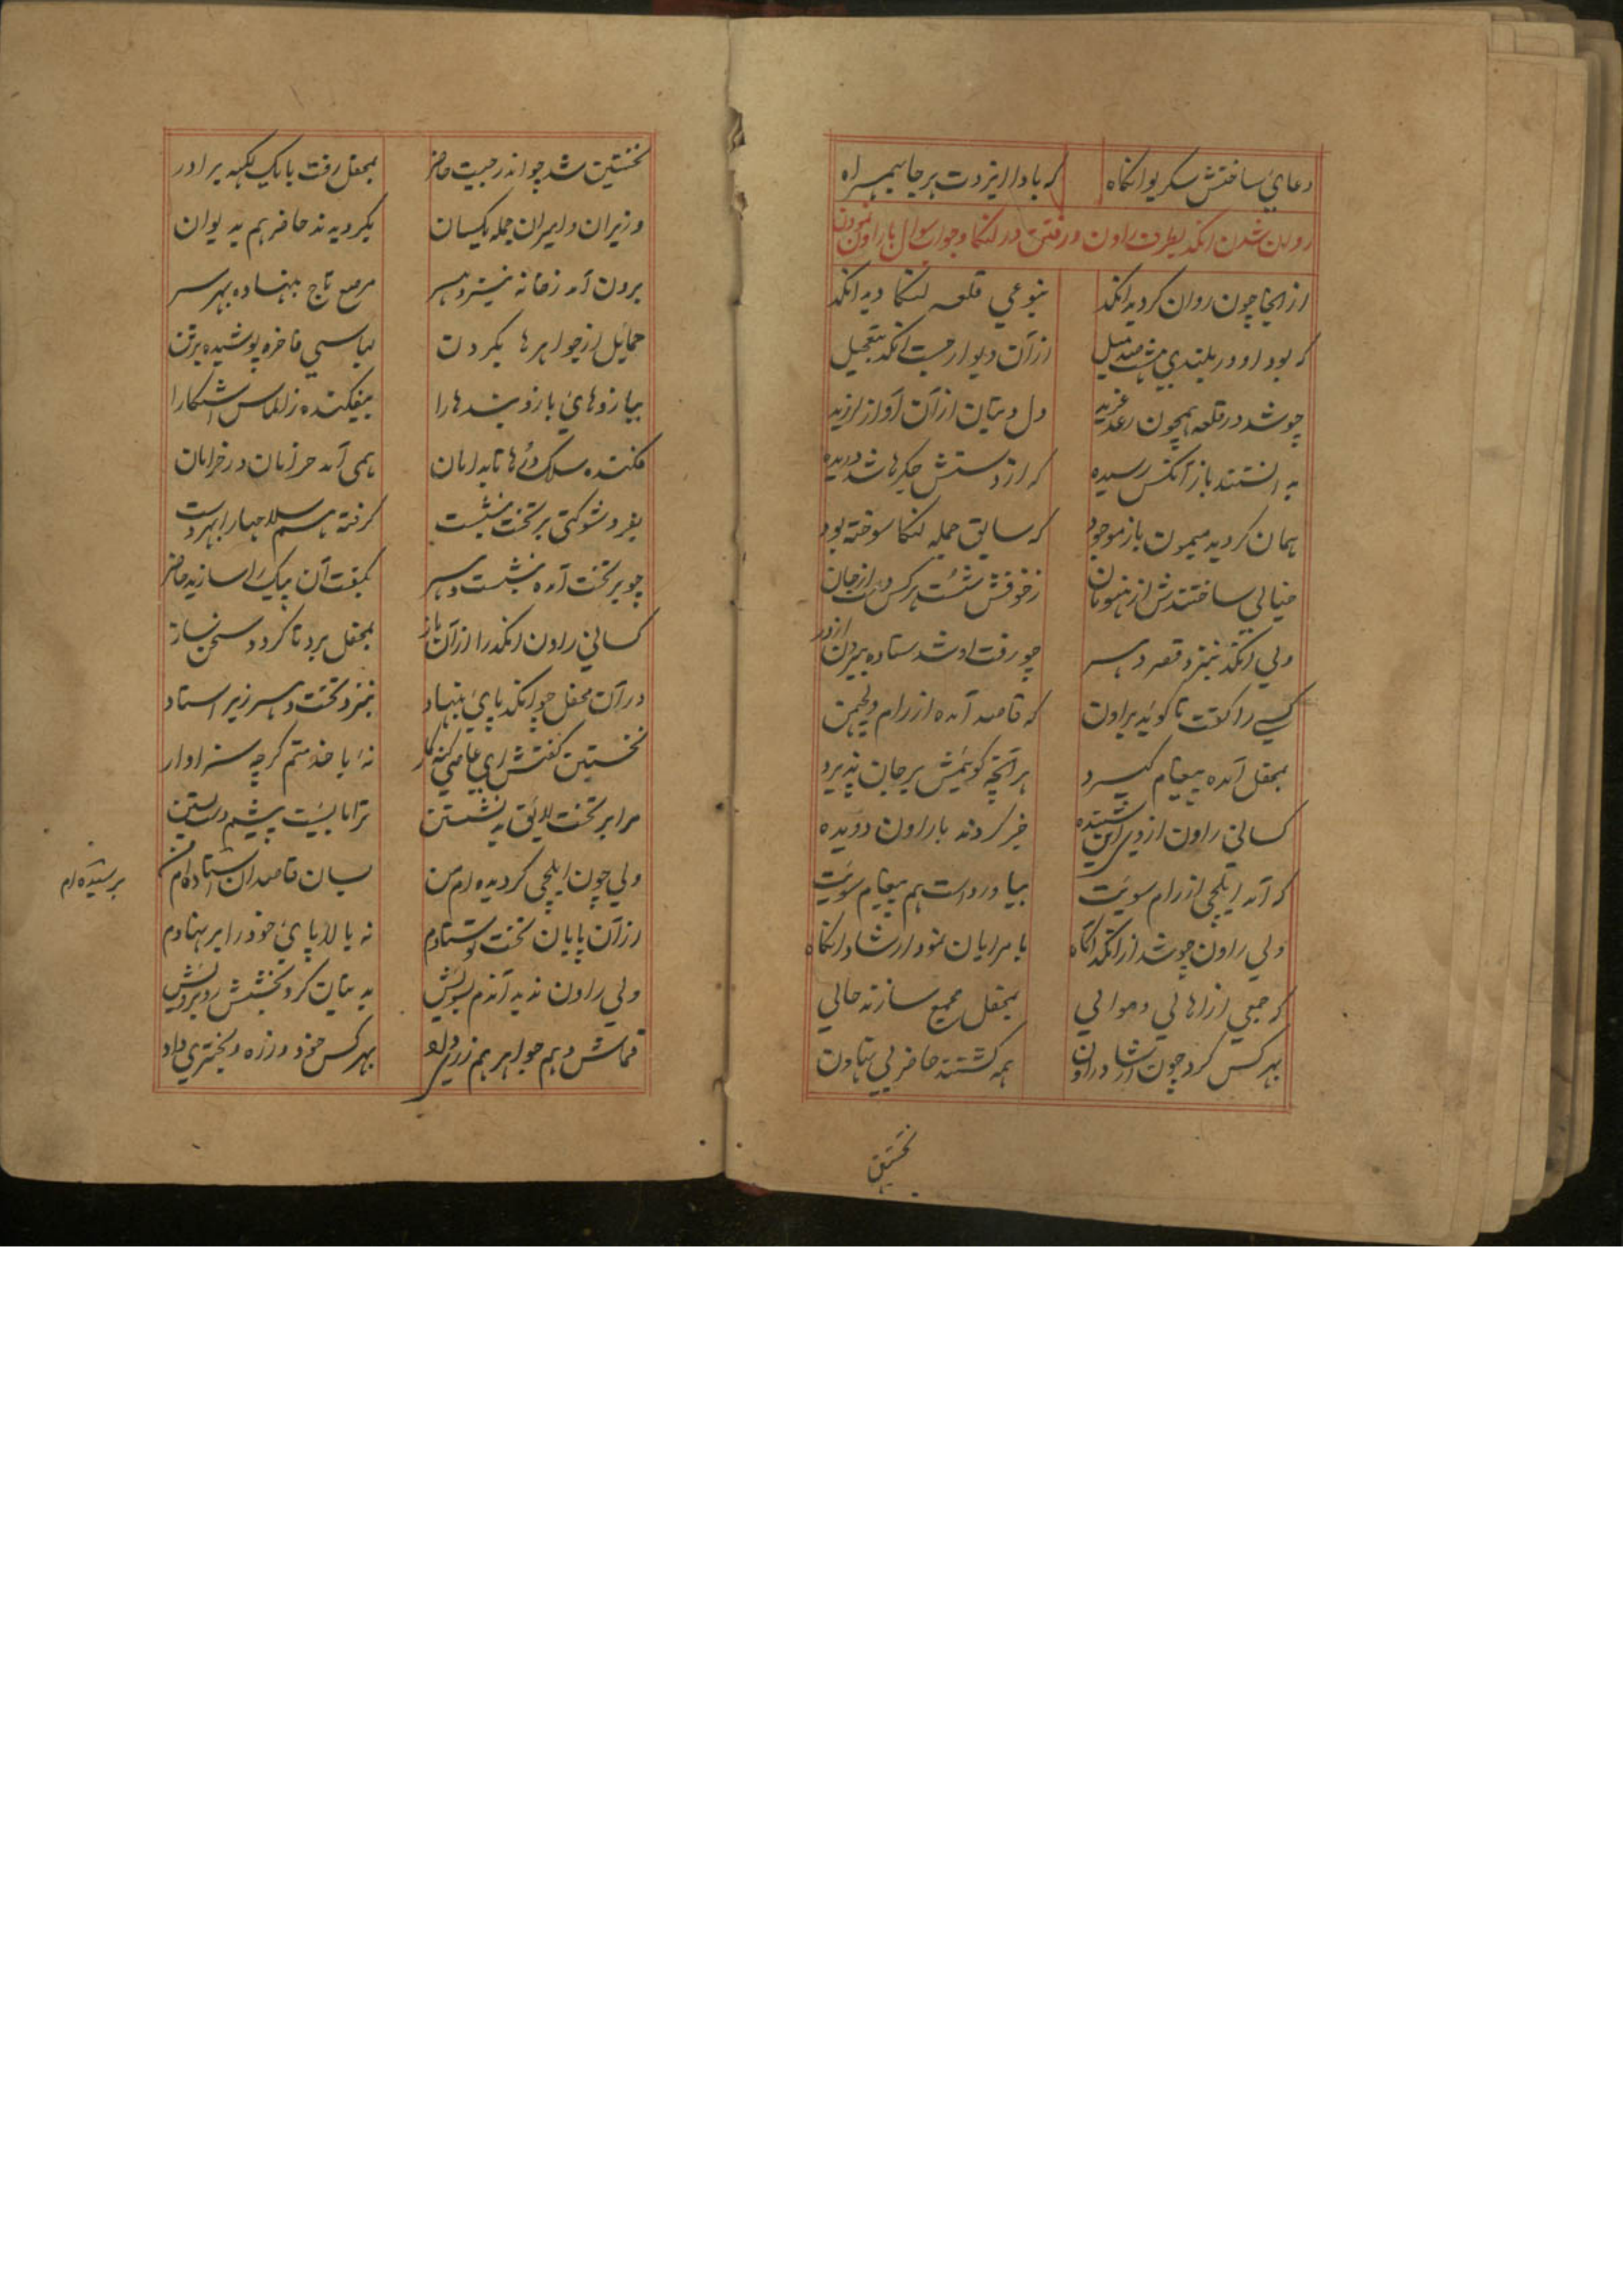 دعای ساختش سکریو انکاه که بادا ایزدت هر جا بهمراه
روان شدن انکد بطرف راون و رفتن در لنکا و جواب سوال با راون نمودن
از انجا چون روان کردید انکد بنوعی قلعه لنکا دید انکد
که بود او در بلندی هشت صد میل از آن دیوار جست انکد بتعجیل
چو شد در قلعه همچون رعد غرید دل دیتان از آن آواز لرزید
بدانستند باز آنکس رسیده که از دستش جکرها شد دریده
همان کردید میمون باز موجود که سابق جمله لنکا سوخته بود
خیالی ساختندش از هنومان زخوفش شست هر کس دست از جان
ولی انکد بنزد قصر دهسر چو رفت او شد ستاده بیرون از در
کسی را کفت تا کوید براون که قاصد آمده از رام و لچمن
بمحفل آمده پیغام کیرد هر آنچه کویمش بر جان پذیرد
کسانی راون از وی این شنیده خبر کردند با راون دویده
که آمد ایلچی از رام سویت بیاورداست هم پیغام سویت
ولی راون چو شد از انکد آکاه بامرایان نمود ارشاد انکاه
که جمعی از اهالی و موالی بمحفل جمع سازند حالی
بهر کس کرد چون ارشاد راون همه کشتند حاضر بی تهاون
نخستین
نخستین شد چو اندرجیت حاضر بمحفل رفت با یک لکهه برادر
وزیران و امیران جمله یکسان بکردیدند حاضر هم بدیوان
برون آمد زخانه نیز دهسر مرصع تاج بنهاده بهر سر
حمایل از جواهرها بکردن لباسی فاخره پوشیده بر تن
ببازوهای بازوبندها را بیفکنده ز الماس آشکارا
فکنده سلک درها تا بدامان همی آمد خرامان در خرامان
بفر و شوکتی بر تخت بنشست کرفته هم سلاحها را بهر دست
چو بر تخت آمده بنشست دهسر بکفت آن پیک را سازید حاضر
کسانی راون انکد را از آن باز بمحفل برد تا کردد سخن ساز
در آن محفل چو انکد پای بنهاد بنزد تخت دهسر زیر استاد
نخستین کفتش ای عاصی کنه کار نه با خدمتم کرچه سزاوار
مرا بر تخت لایق بد نشستن ترا بایست پیشم دست بستن
ولی چون ایلچی کردیده ام من بسان قاصدان استاده ام من
برشیده ام
از آن پایان تخت او ستادم نه بالا پای خود را بر نهادم
ولی راون ندید آندم بسویش بدیتان کرد بخشش روبرویش
قماش و هم جواهر هم زر و لو بهر کس خود و زره و بختری داد